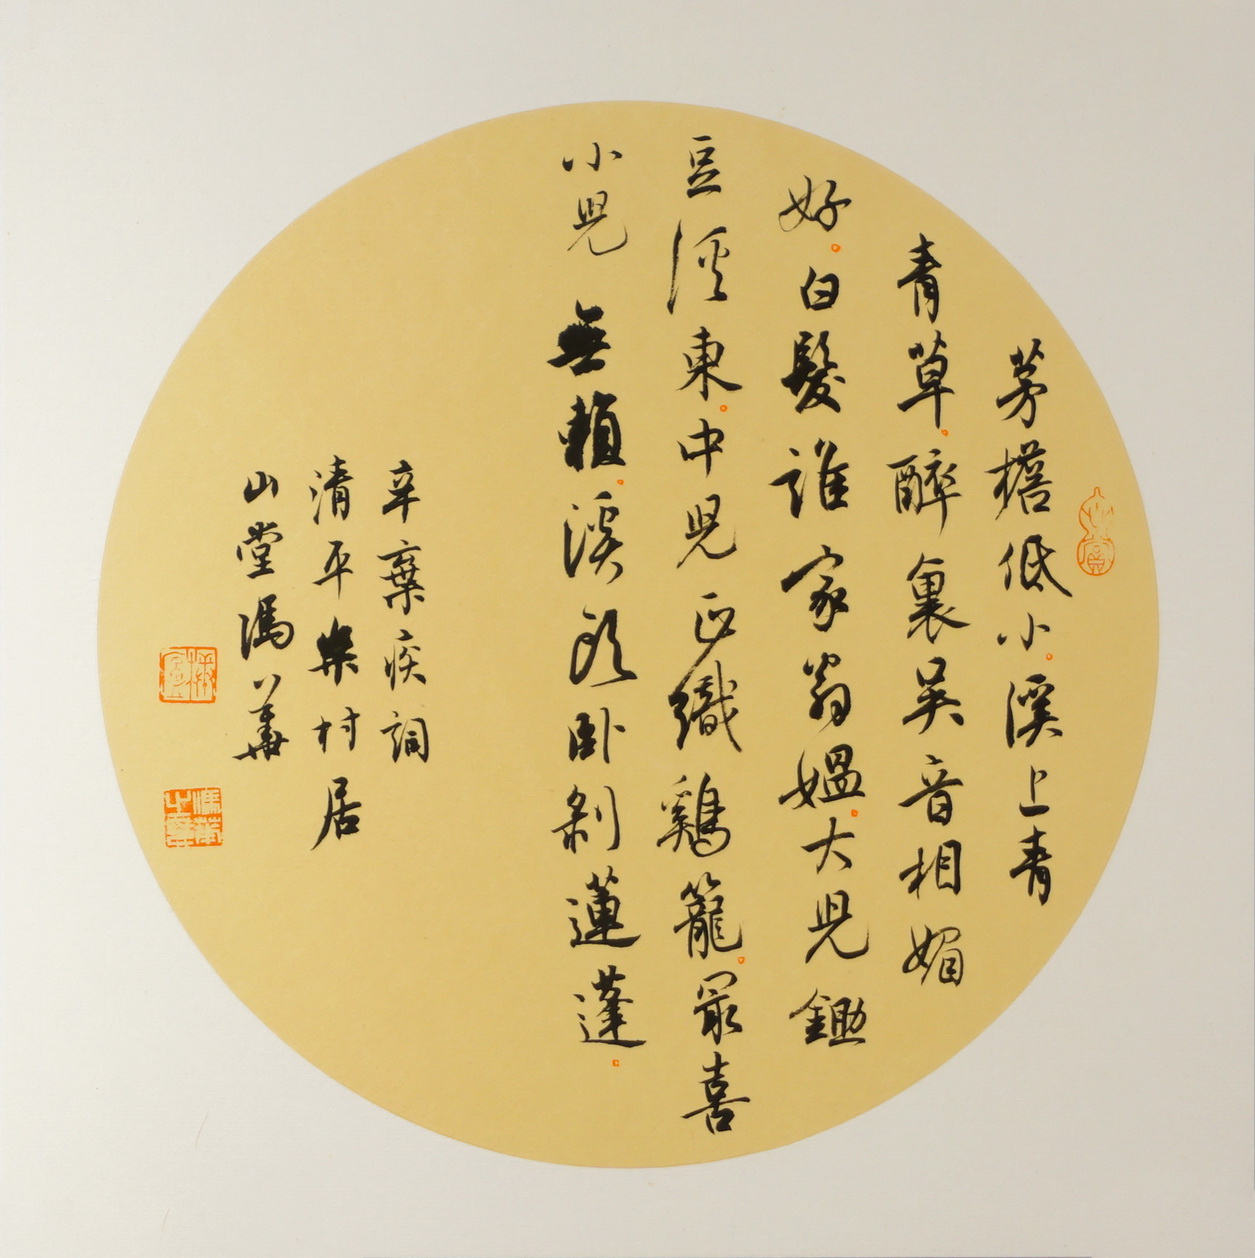 茅檐低小。溪上青
青草。醉裏吳音相媚
好。白髮誰家翁媼。大兒鋤
豆溪東。中兒正織鷄籠。冣喜
小兒無賴。溪頭卧剥蓮蓬。
辛棄疾詞
清平樂村居
山堂馮華